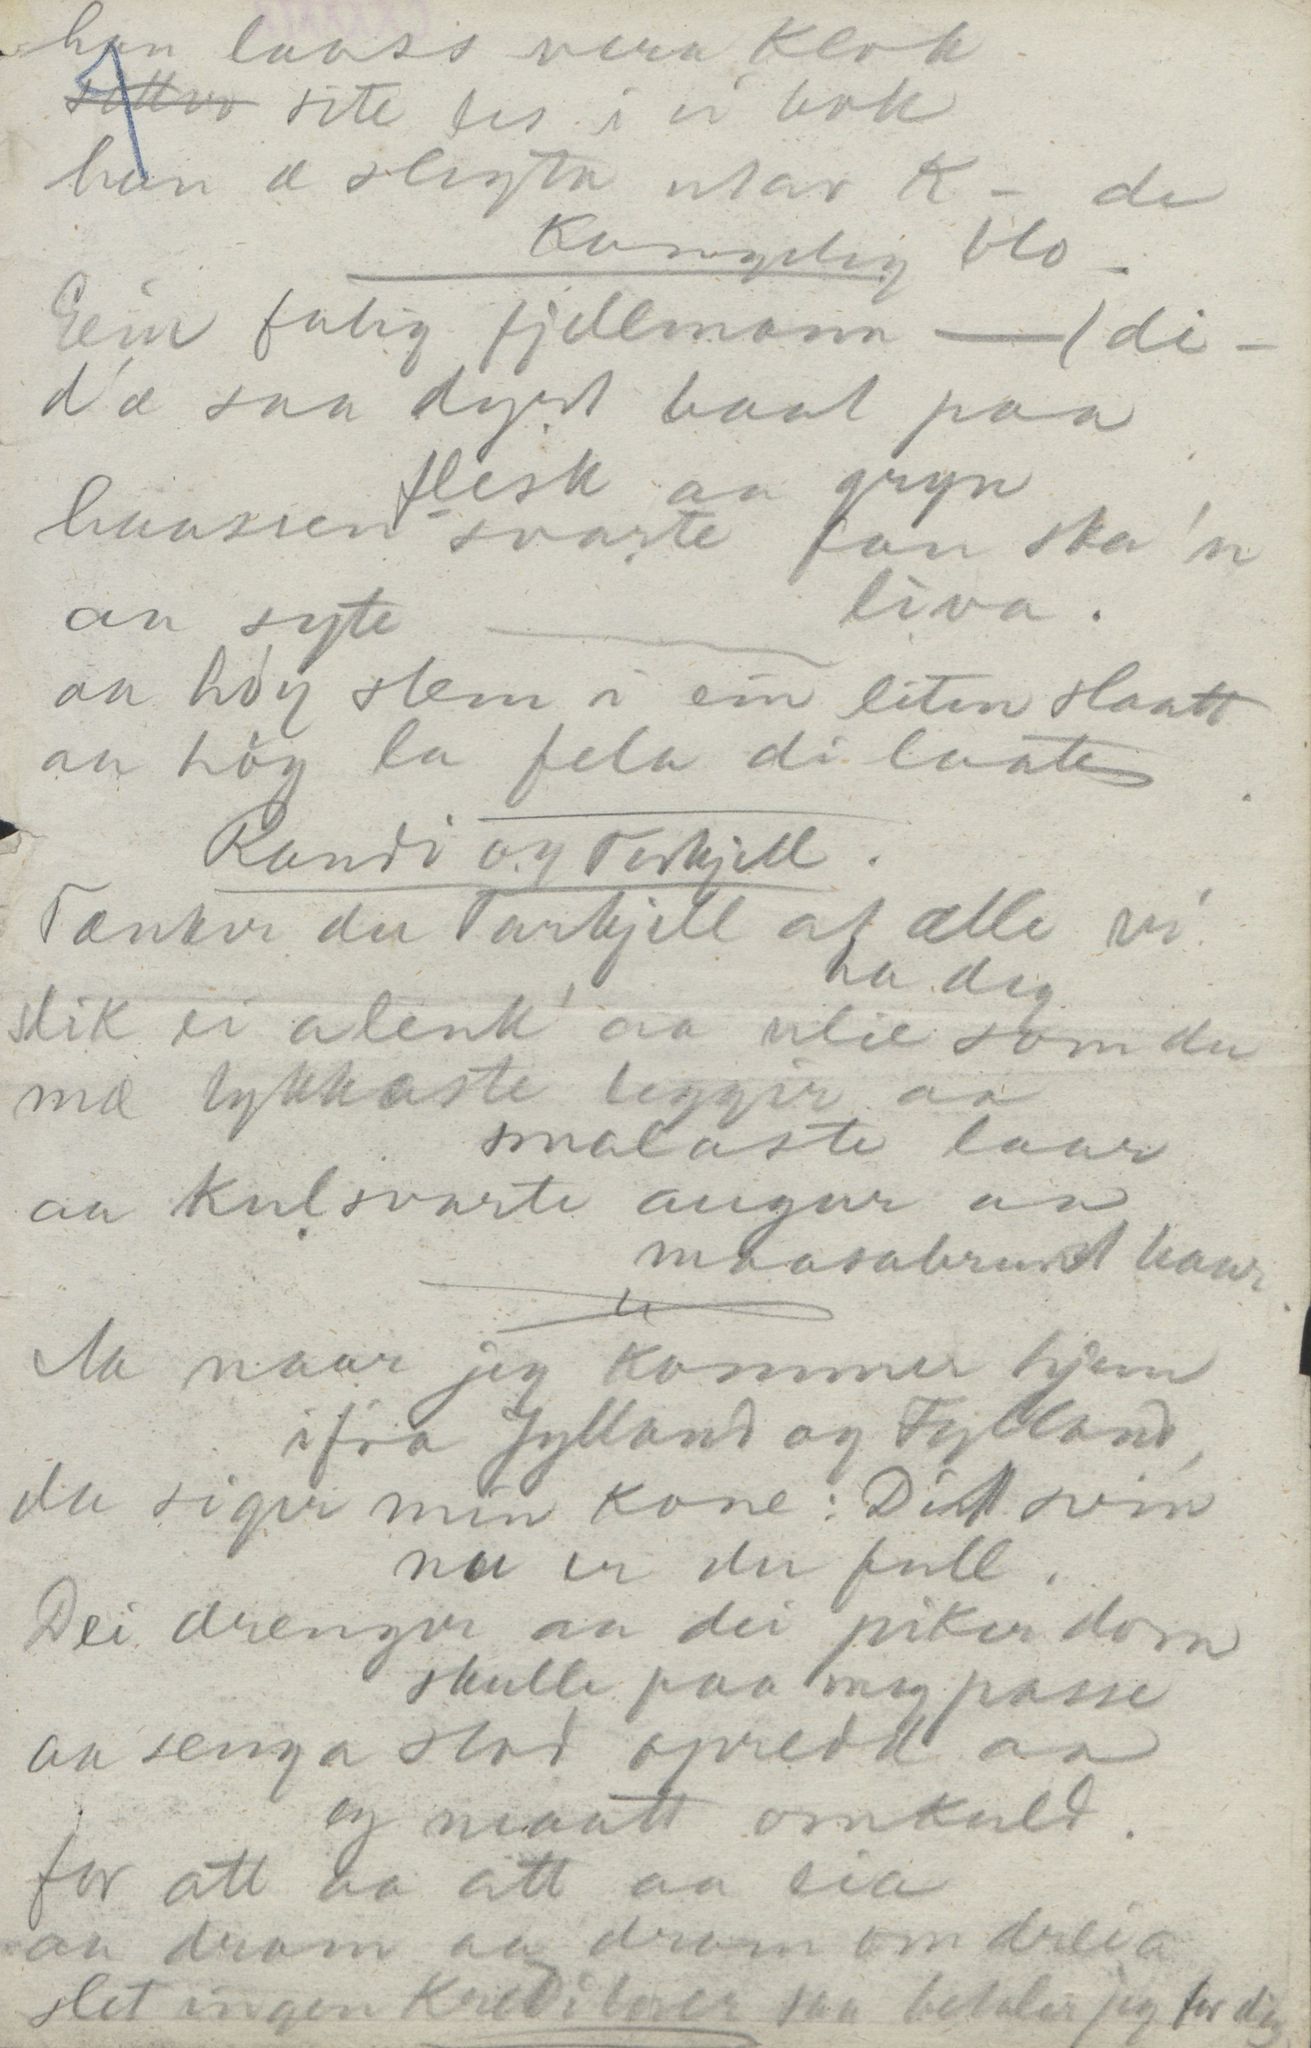 han laass vera Klok
site tes i ei bok
han æ slegta utav K – de
Kongeleg blo –
Eein fatig fjellmann — (di –
d'æ saa dyrt baat paa
flesk aa gryn
haassen svarte fan ska 'n
liva.
aa syte
aa høy stem i ein liten slaatt
aa høy la fela di laate
Randi og Terkjell.
Tænker du Tarkjell at ælle vi
ha deg
slik ei alenk' aa som du
mæ tykkaste leggir aa
smalaste laar
aa Kulsvarte augur aa
maasabrunt haar.
Aa naar jeg kommer hjem
ifra Jylland og Fylland,
da siger min Kone: Dit svin
nu er du full.
Dei drenger aa dei piker dom
skulle paa meg passe
aa senga stod opredd aa
eg maatt omkuld.
for att aa att aa eia
aa dram aa dram om dreia
slet ingen Kreditorer saa betaler jeg for dig